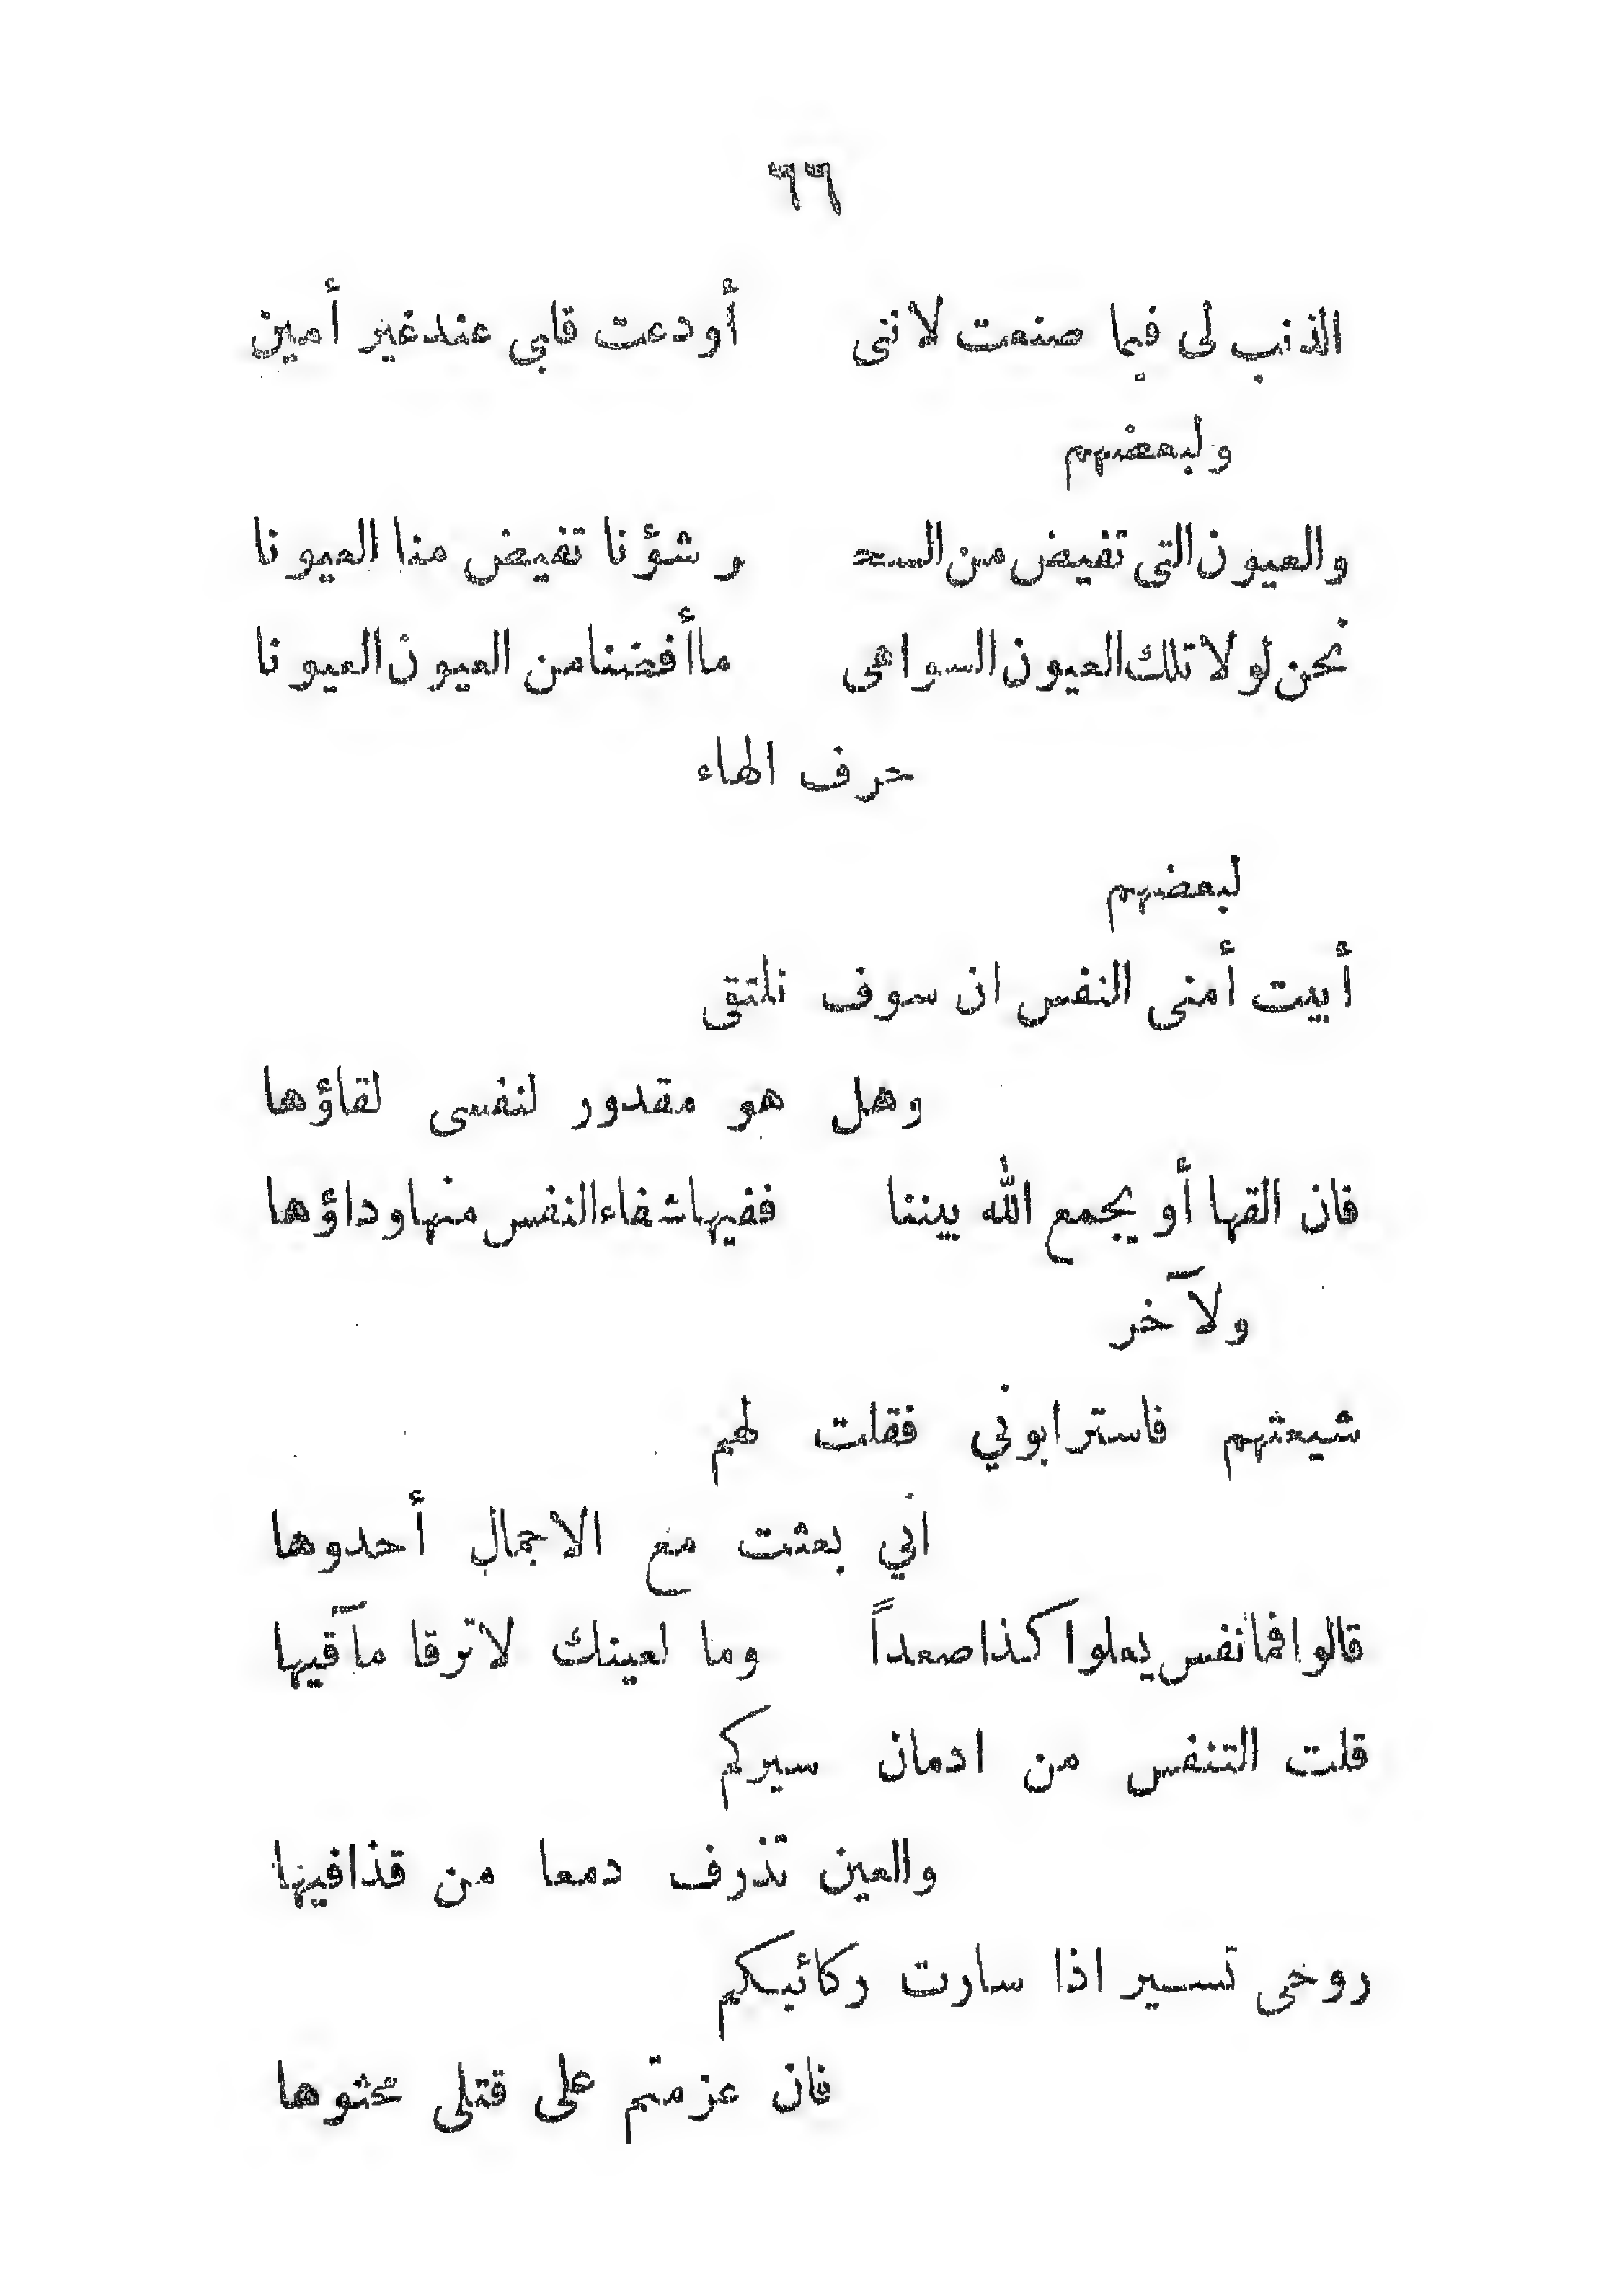 ٦٦
الذنب لى فيما صنعت لاننى أودعت قلبى عند غير أمين
ولبعضهم
والعيون التى تفيض من السحـ ـر شؤنا تفيض منا العيونا
نحن لولا تلك العيون السواهى ما أفضنا من العيون العيونا
حرف الهاء
لبعضهم
أبيت أمنى النفس ان سوف نلتقى
وهل هو مقدور لنفسى لقاؤها
فان القها أو يجمع الله بيننا ففيها شفاء النفس منها وداؤها
ولآخر
شيعتهم فاسترابوني فقلت لهم
اني بعثت مع الاجمال أحدوها
قالوا فما نفس يعلوا كذا صعداً وما لعينك لا ترقا مآقيها
قلت التنفس من ادمان سيركم
والعين تذرف دمعا من قذا فيها
روحى تسير اذا سارت ركائبكم
فان عزمتم على قتلى فحثوها